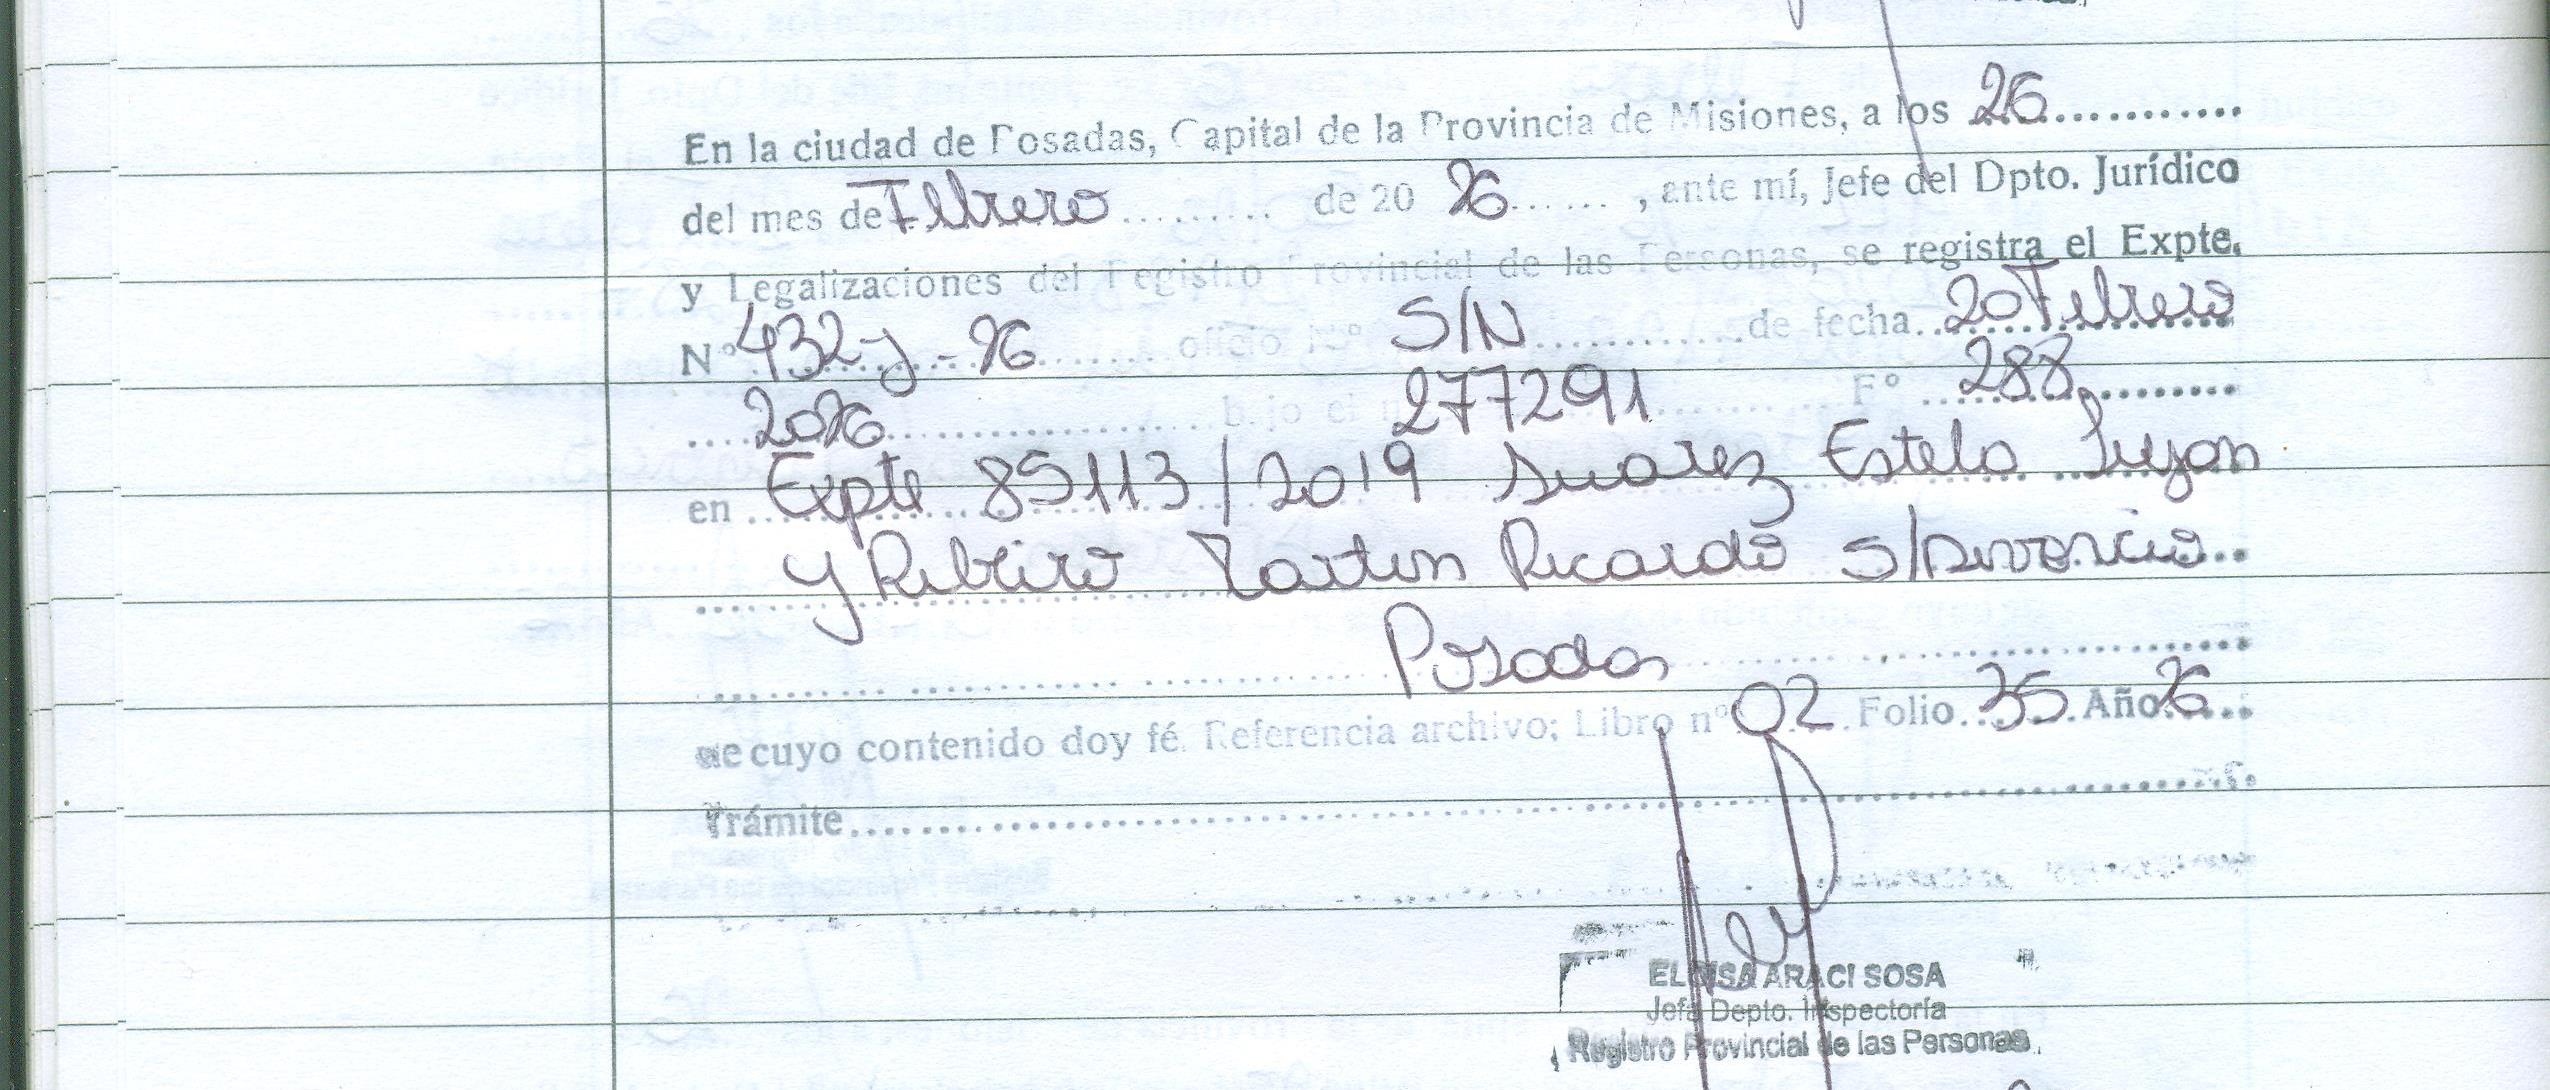 En la ciudad de Posadas, Capital de la Provincia de Misiones, a los 26
del mes de Febrero de 20 26, ante mí, Jefe del Dpto. Jurídico
y Legalizaciones del Registro Provincial de las Personas, se registra el Expte.
N° 432-J-26 oficio N° S/N de fecha 20 Febrero
2026 bajo el n 277291 F° 288
en Expte 85113/2019 Suarez Estela Lujan
y Ribeiro Martin Ricardo S/Divorcio
Posadas
de cuyo contenido doy fé. Referencia archivo; Libro n° 02 Folio 35 Año 26
Trámite
ELOISA ARACI SOSA
Jefa Depto. Inspectoría
Registro Provincial de las Personas